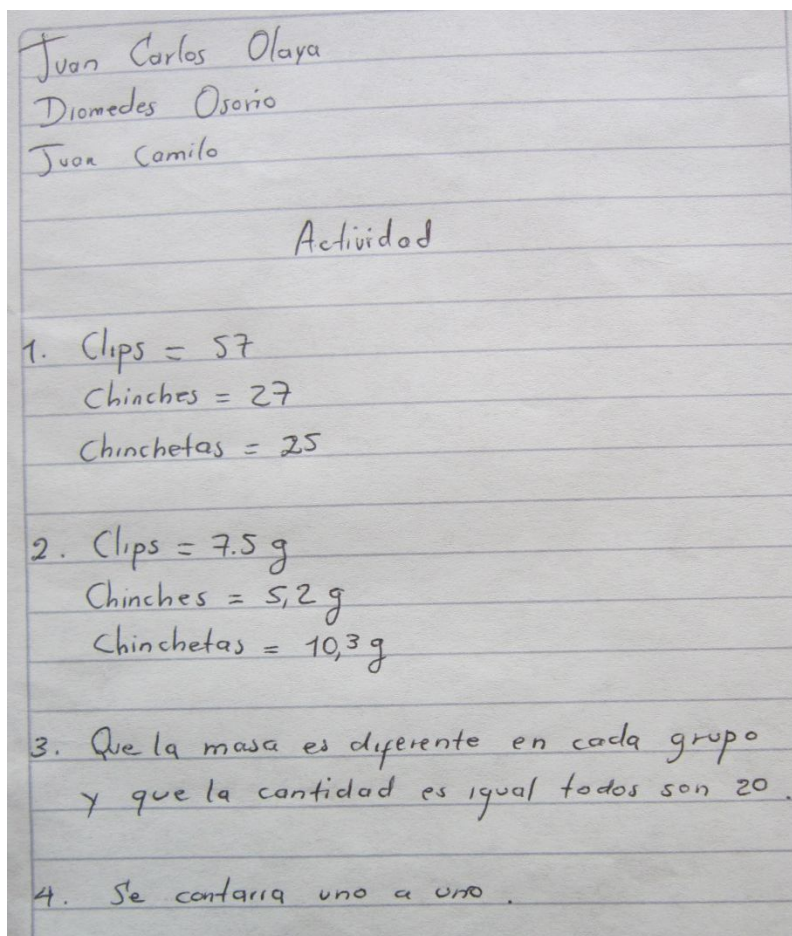 Juan Carlos Olaya
Diomedes Osorio
Juan Camilo
Actividad
1. Clips = 57
Chinches = 27
Chinchetas = 25
2. Clips = 7.5 g
Chinches = 5,2 g
Chinchetas = 10,3 g
3. Que la masa es diferente en cada grupo
y que la cantidad es igual todos son 20.
4. Se contaria uno a uno.